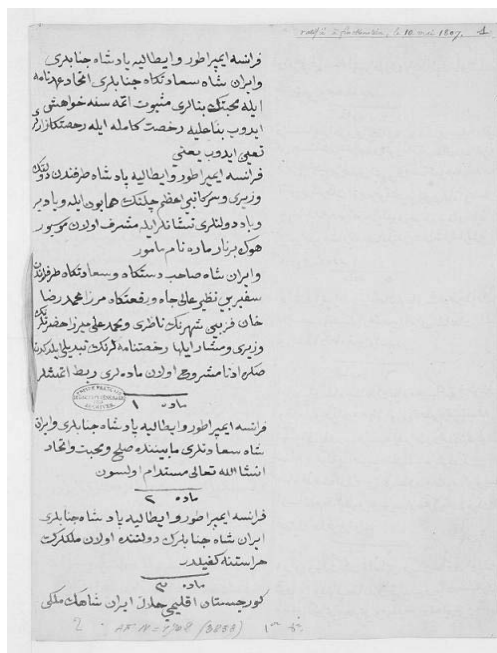 ratifié à Finckenstein, le 10 mai 1807.
فرانسه ایمپراطور و ایطالیه پادشاه جنابلری
وایران شاه سعادتکاه جنابلری اتحاد عهدنامه
ایله محبتك بنالری مثبوت اتمه سنه خواهشی
ایدوب بناءلیه رخصت کامله ایله رخصتکارلری
تعیی ایدوب یعنی
فرانسه ایمپراطور و ایطالیه پادشاه طرفندن دولتك
وزیری وسرکاتبی اعظم همایون ایله
وباد دولتلری نشانلر ایله مشرف اولان موسیور
هوك برنار ماره نام مامور
وایران شاه صاحب دستکاه وسعادتکاه طرفندن
سفیر بی نظیر عالی جاه ورفعتکاه مرزا محمد رضا
خان قزبینی شهرنك ناظری ومحمد علی میرزا حضرتلرینك
وزیری ومشار ایلها رخصتنامه لرنك تبدیلی ایلدکدن
صکره ادنا مشروحی اولان ماده لری ربط اتمشلر
ماده ۱
فرانسه ایمپراطور و ایطالیه پادشاه جنابلری وایران
شاه سعادتلری مابیننده صلح ومحبت واتحاد
انشا الله تعالی مستدام اولسون
ماده ۲
فرانسه ایمپراطور و ایطالیه پادشاه جنابلری
ایران شاه جنابلرك دولتنده اولان ملکلرك
حراستنه کفیلدر
ماده ۳
کورجستان اقلیمی حلال ایران شاهك ملکی